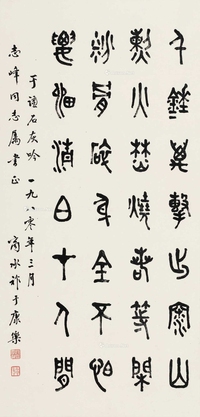 千錘萬擊出深山
烈火焚燒若等閒
粉骨碎身全不怕
要留清白在人間
于謙石灰吟 一九八零年三月 商承祚于康樂
志峰同志屬書正